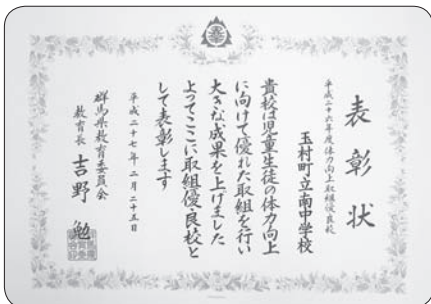 表彰状
平成二十六年度体力向上取組優良校
玉村町立南中学校
貴校は児童生徒の体力向上
に向けて優れた取組を行い
大きな成果を上げました
よってここに取組優良校と
して表彰します
平成二十七年二月二十五日
群馬県教育委員会
教育長 吉野 勉